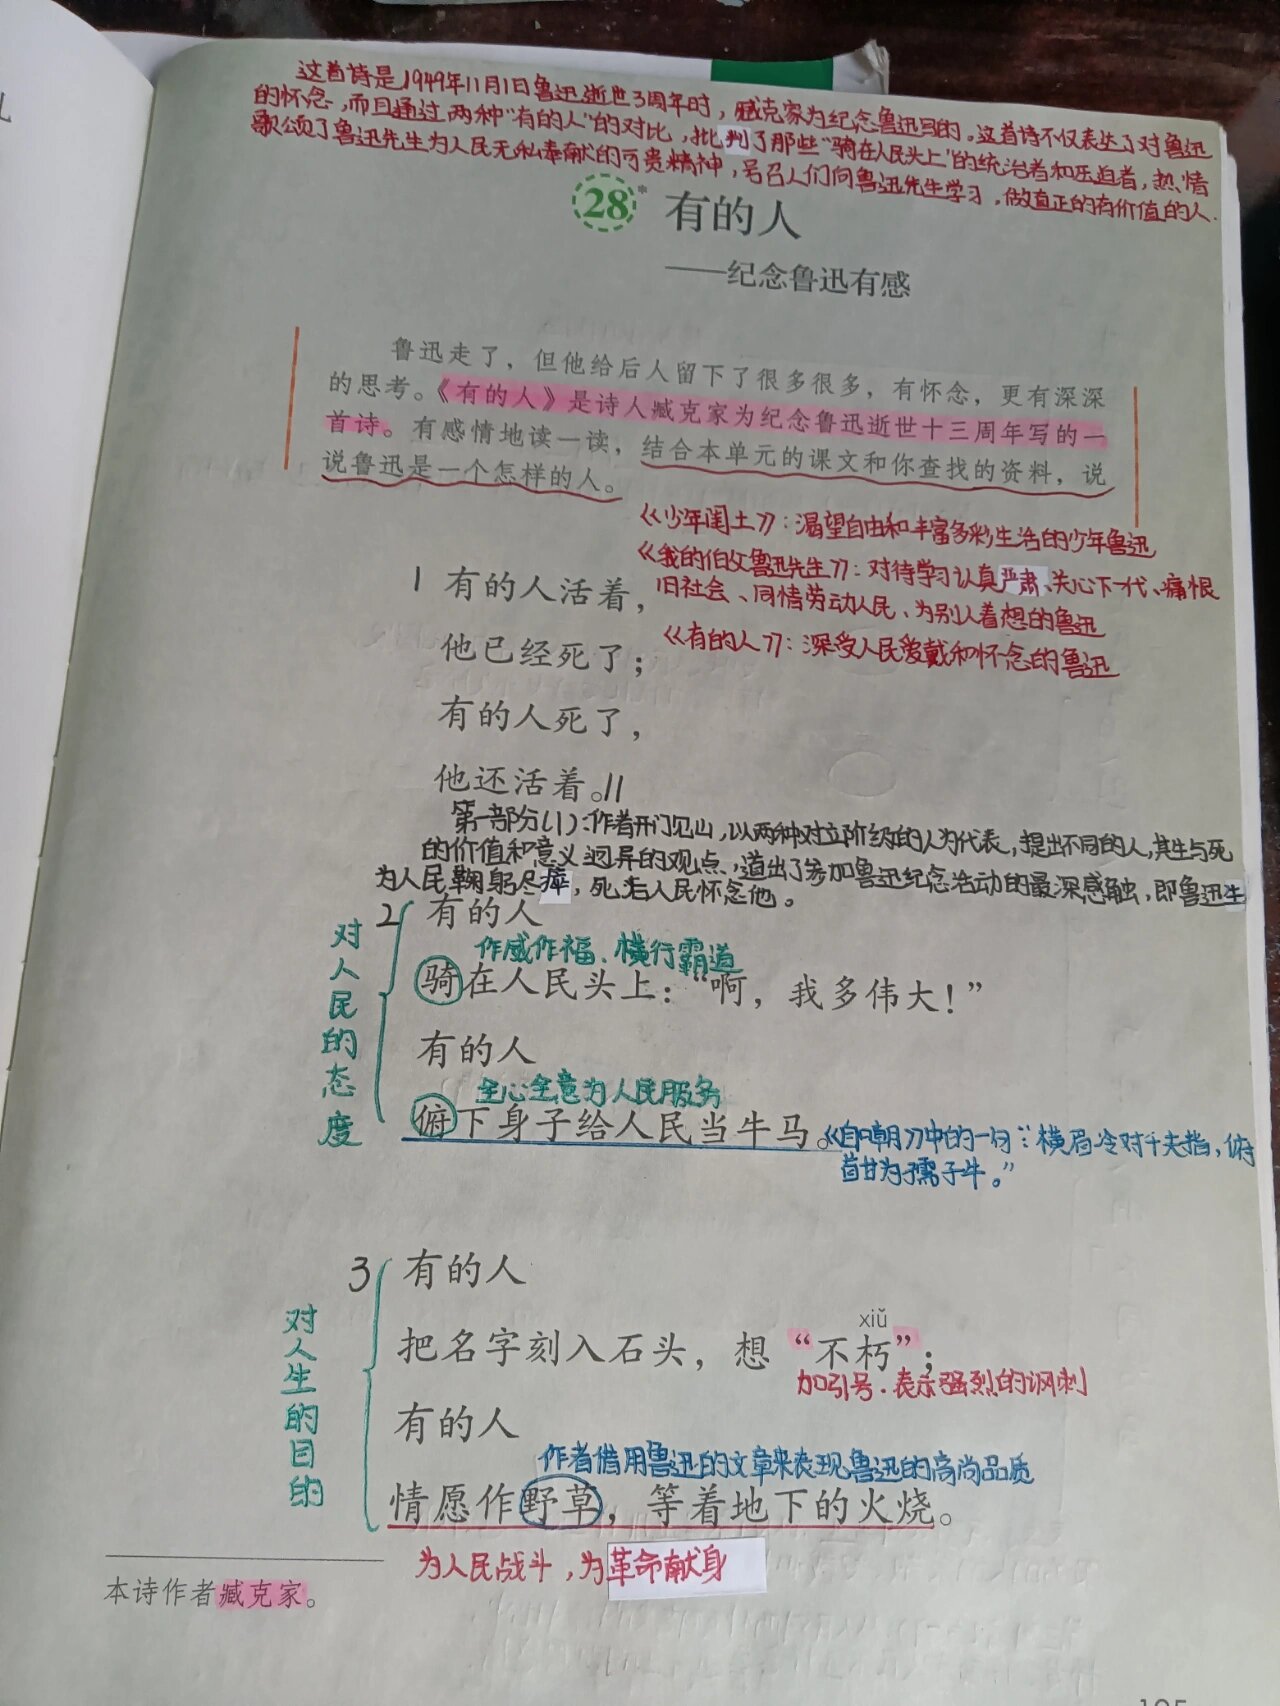 这首诗是1949年11月1日鲁迅逝世13周年时，臧克家为纪念鲁迅写的。这首诗不仅表达了对鲁迅
的怀念，而且通过两种“有的人”的对比，批判了那些“骑在人民头上”的统治者和压迫者，热情
歌颂了鲁迅先生为人民无私奉献的可贵精神，号召人们向鲁迅先生学习，做真正的有价值的人.
28* 有的人
——纪念鲁迅有感
鲁迅走了，但他给后人留下了很多很多，有怀念，更有深深
的思考。《有的人》是诗人臧克家为纪念鲁迅逝世十三周年写的一
首诗。有感情地读一读，结合本单元的课文和你查找的资料，说
说鲁迅是一个怎样的人。
《少年闰土》：渴望自由和丰富多彩生活的少年鲁迅
《我的伯父鲁迅先生》：对待学习认真严肃、关心下一代、痛恨
旧社会、同情劳动人民、为别人着想的鲁迅
《有的人》：深受人民爱戴和怀念的鲁迅
1 有的人活着，
他已经死了；
有的人死了，
他还活着。//
第一部分(1)：作者开门见山，以两种对立阶级的人为代表，提出不同的人，其生与死
的价值和意义迥异的观点，道出了参加鲁迅纪念活动的最深感触，即鲁迅生
为人民鞠躬尽瘁，死后人民怀念他。
对人民的态度
2 有的人
作威作福、横行霸道
骑在人民头上：“啊，我多伟大！”
有的人
全心全意为人民服务
俯下身子给人民当牛马。《自嘲》中的一句：“横眉冷对千夫指，俯
首甘为孺子牛。”
对人生的目的
3 有的人
xiǔ
把名字刻入石头，想“不朽”；
加引号.表示强烈的讽刺
有的人
作者借用鲁迅的文章来表现鲁迅的高尚品质
情愿作野草，等着地下的火烧。
为人民战斗，为革命献身
本诗作者臧克家。